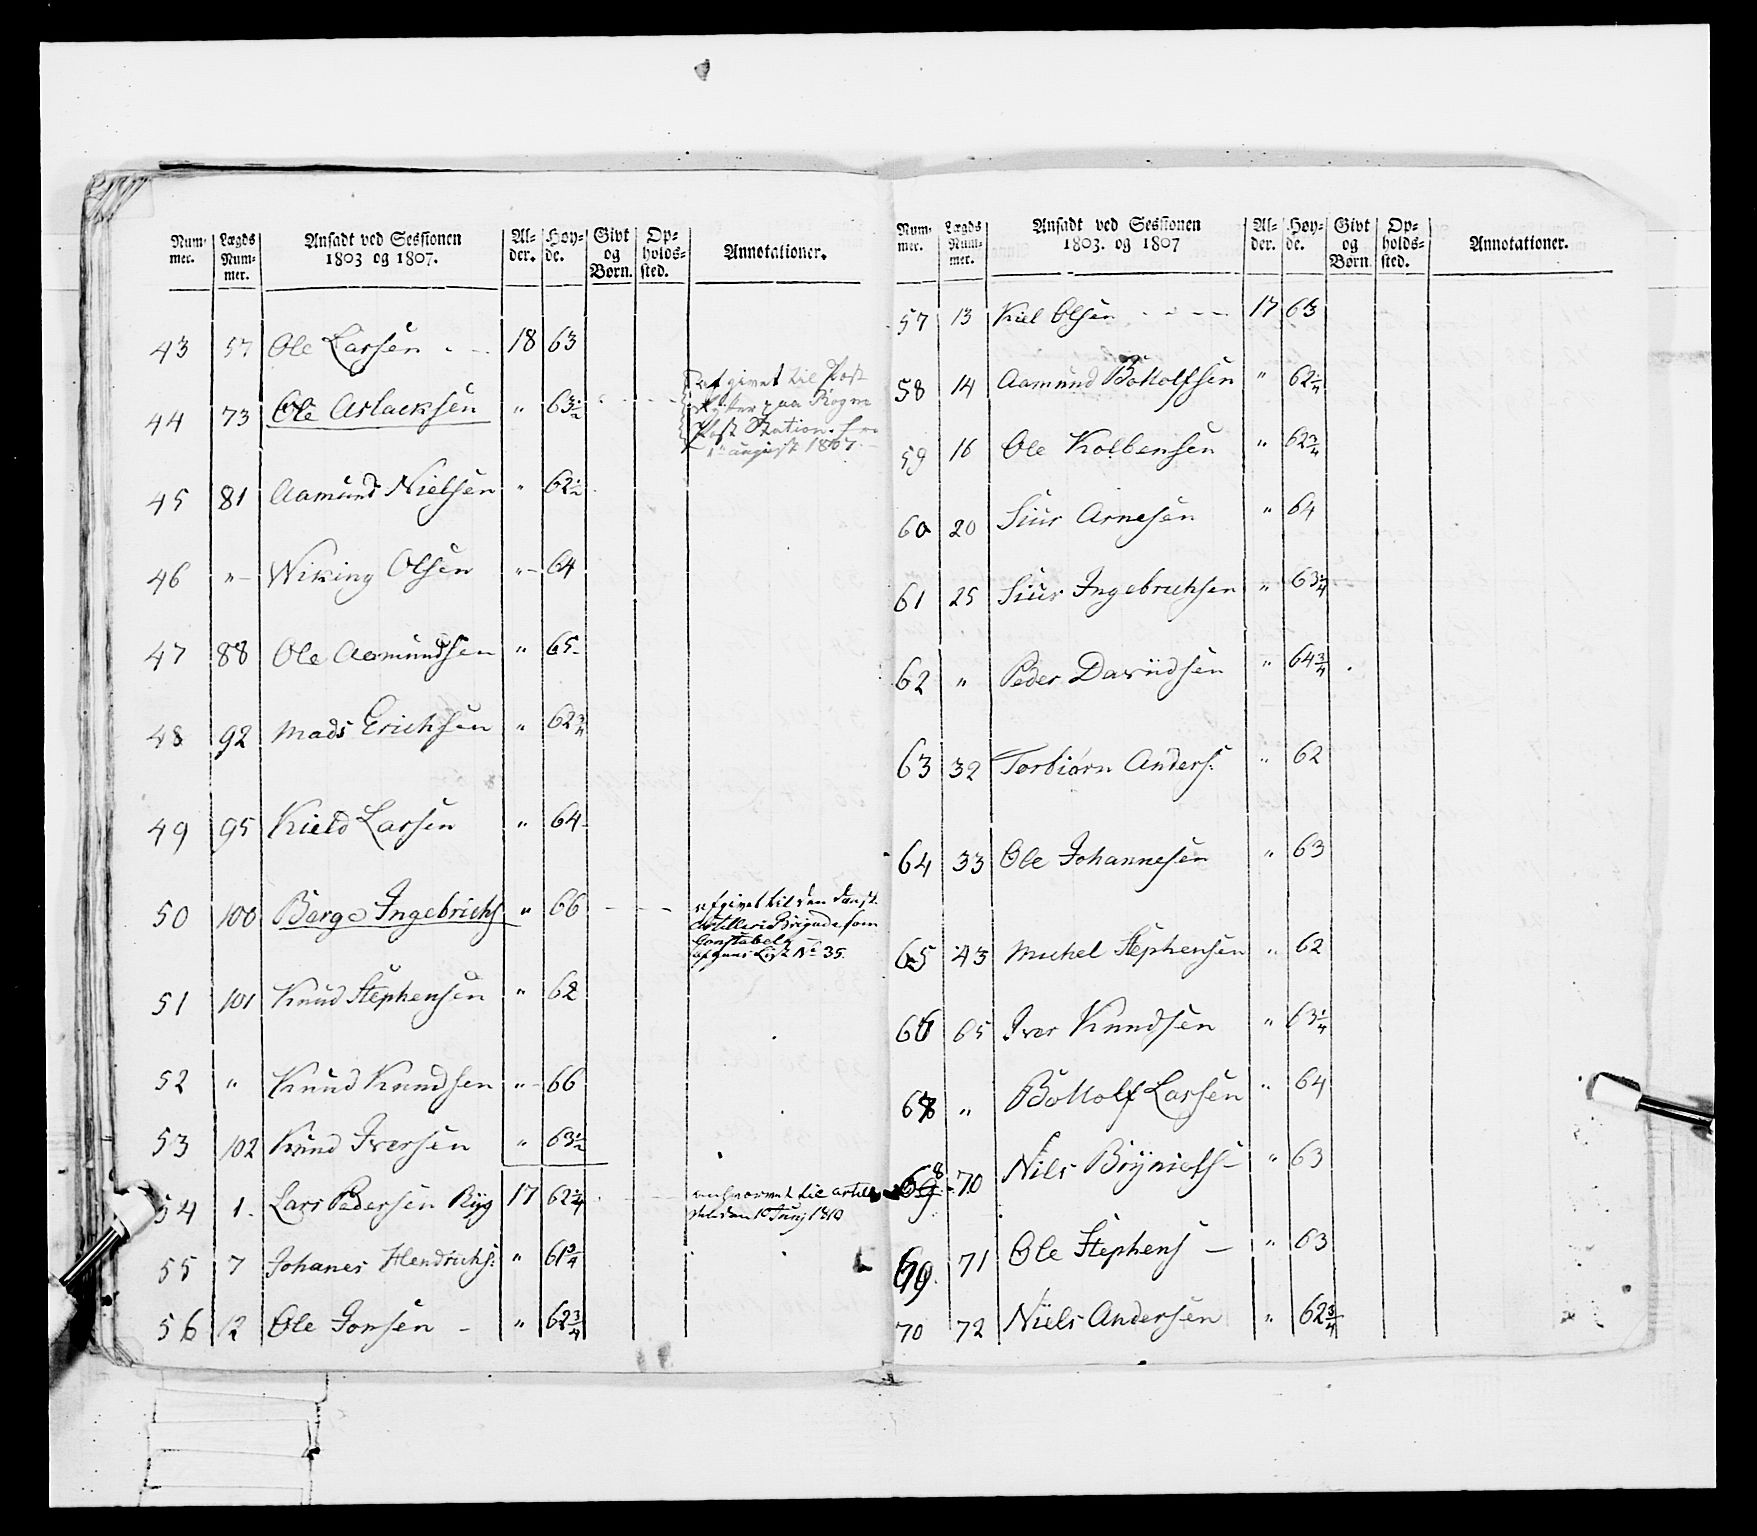 Num- mer. Lægds Num- mer. Ansadt ved Sessionen 1803 og 1807. Al- der. Høy- de. Givt og Børn. Op- holds- sted. Annotationer.
43 57 Ole Larsen 18 63
44 73 Ole Aslacksen " 63½ afgivet til Post
paa
Post Station fra
august 1807.
45 81 Aamund Nielsen " 62½
46 " Wiking Olsen " 64
47 88 Ole Aamundsen " 65
48 92 Mads Erichsen " 62¾
49 95 Kield Larsen " 64
50 100 Børge Ingebrichs " 66 afgivet til den
Artillerie Brigade som
Constabel
List No 35.
51 101 Knud Stephensen " 62
52 " Knud Knudsen " 66
53 102 Knud Iversen " 63½
54 1. Lars Pedersen Ryg 17 62¼ til
den 10 Junj 1810
55 7 Johanes Hendrichs: " 61¾
56 12 Ole Jonsen " 62¾
Num- mer. Lægds Num- mer. Ansadt ved Sessionen 1803. og 1807 Al- der. Høy- de. Givt og Børn. Op- holds- sted. Annotationer.
57 13 Kiel Olsen 17 63
58 14 Aamund Bottolfsen " 62¼
59 16 Ole Kolbensen " 62¾
60 20 Siur Arnesen " 64
61 25 Siur Ingebrichsen " 63¼
62 " Peder Davidsen " 64¾
63 32 Torbiørn Anders: " 62
64 33 Ole Johannesen " 63
65 43 Michel Stephensen " 62
66 65 Iver Knudsen " 63¼
67 " Bottolf Larsen " 64
68 70 Nils Bryniels " 63
69 71 Ole Stephens " 63
70 72 Niels Andersen " 62¾